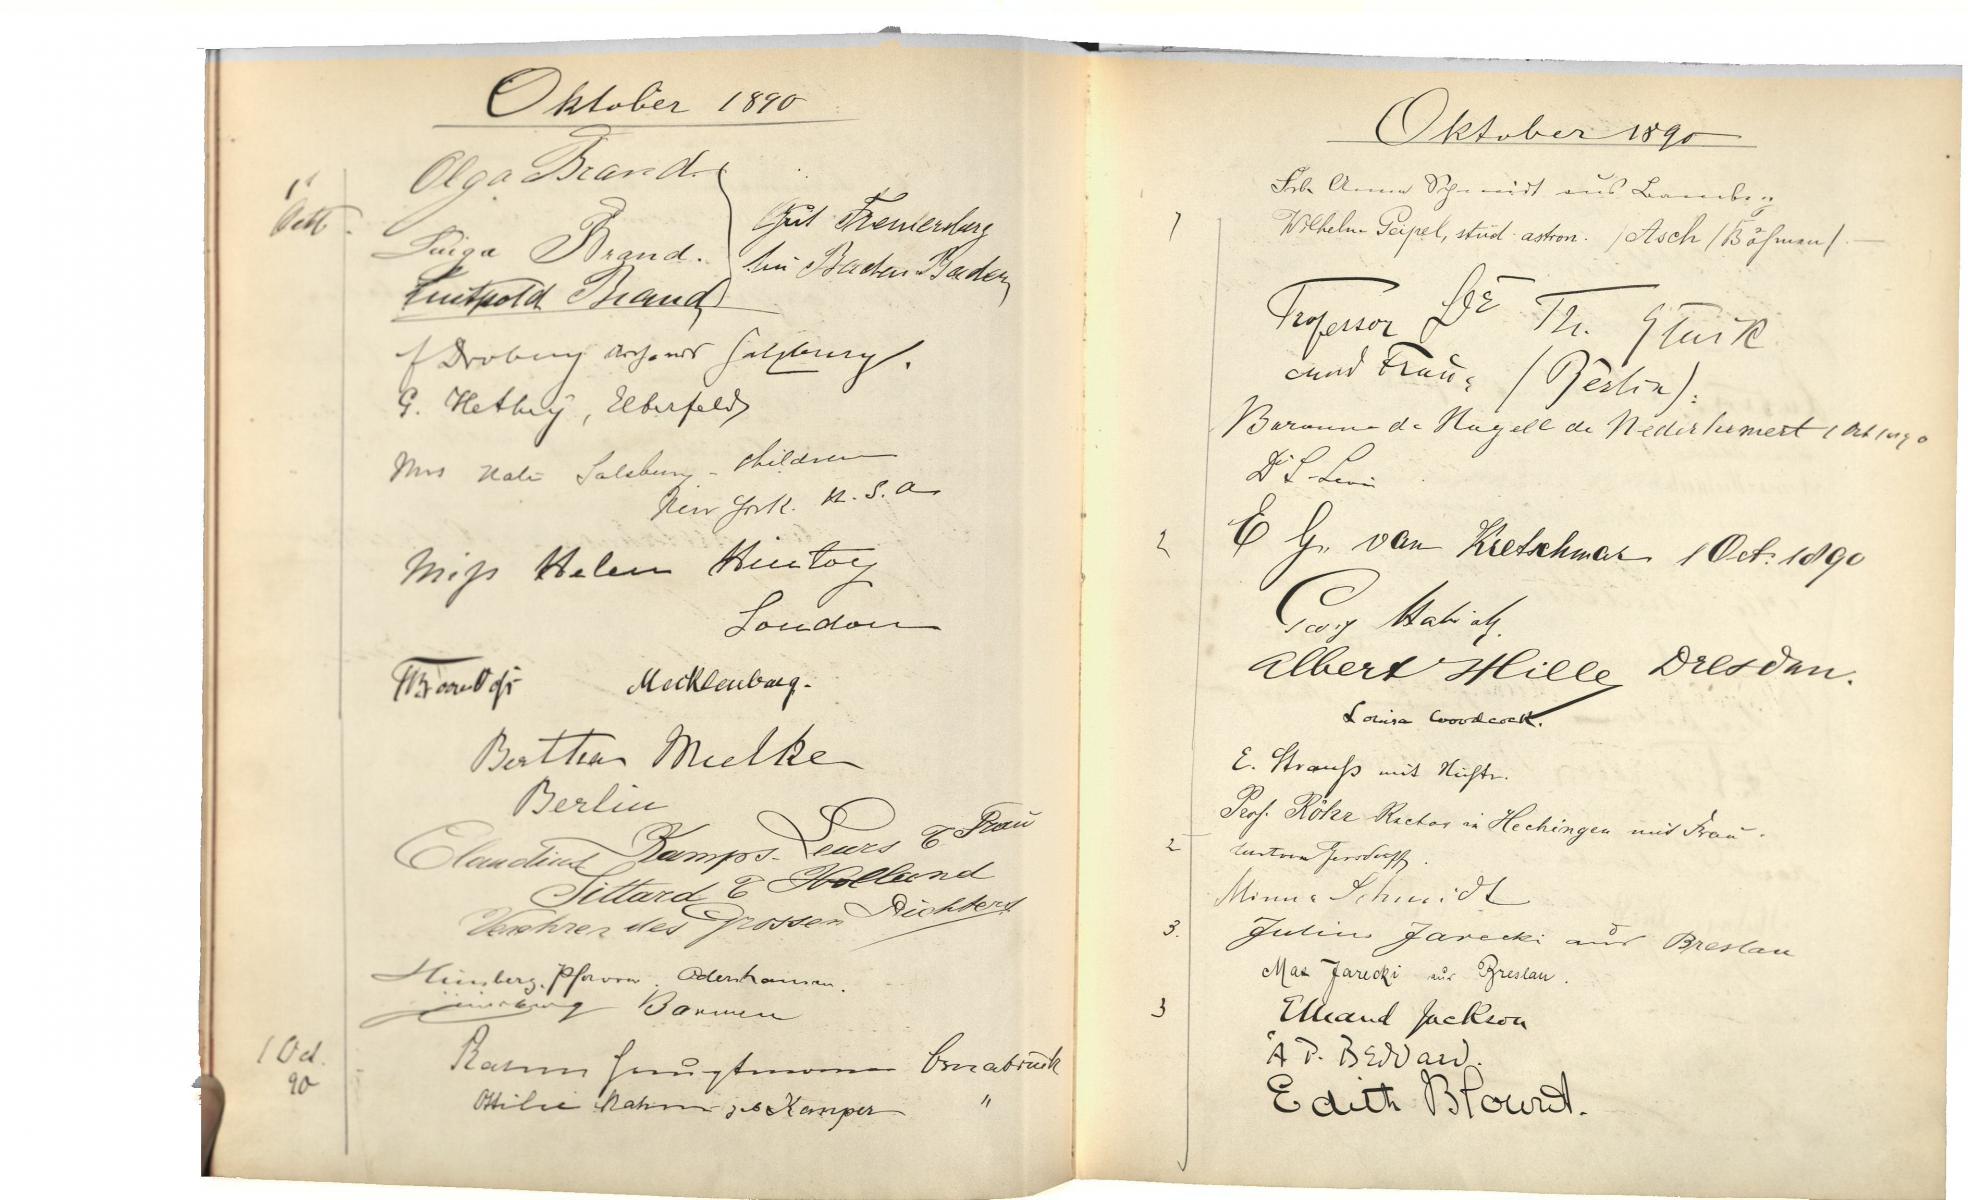 Oktober 1890
1t
Octb.
Olga Brand.
Luiga Brand.
Luitpold Brand
Gut Fremersberg
bei Baden-Baden
Drobny Salzburg.
G. Hethey, Elberfeld
Mrs Salzburg - children
New York. U.S.A
Miss Helen
London
Mecklenburg.
Bertha Mielke
Berlin
Claudius Kamps-Leurs & Frau
Sittard & Holland
Verehrer des Grossen Dichters
Hünsberg, Pfarrer.
Barmen
1 Oct.
90
Rahm Osnabrück
Ottilie Rahm geb Kamper "
Oktober 1890
Frl. Anna Schmidt aus Bamberg
1
Wilhelm Geipel, stud. astron. /Asch/Böhmen/. —
Professor Dr Th. Sturk
und Frau, (Berlin).
Baronne de Nagell de Nederhemert 1 Oct 1890
Dr S. Levi
2
E G. van Kretschmar 1 Oct. 1890
Georg Habich
Albert Hille Dresden.
Louisa Woodcock.
E. Strauß mit
Prof. Röhr Rector in Hechingen mit Frau.
2
Minna Schmidt
3.
Julius Jarecki aus Breslau
Max Jarecki aus Breslau.
3
EMaud Jackson
A P. Beddard.
Edith Blount.